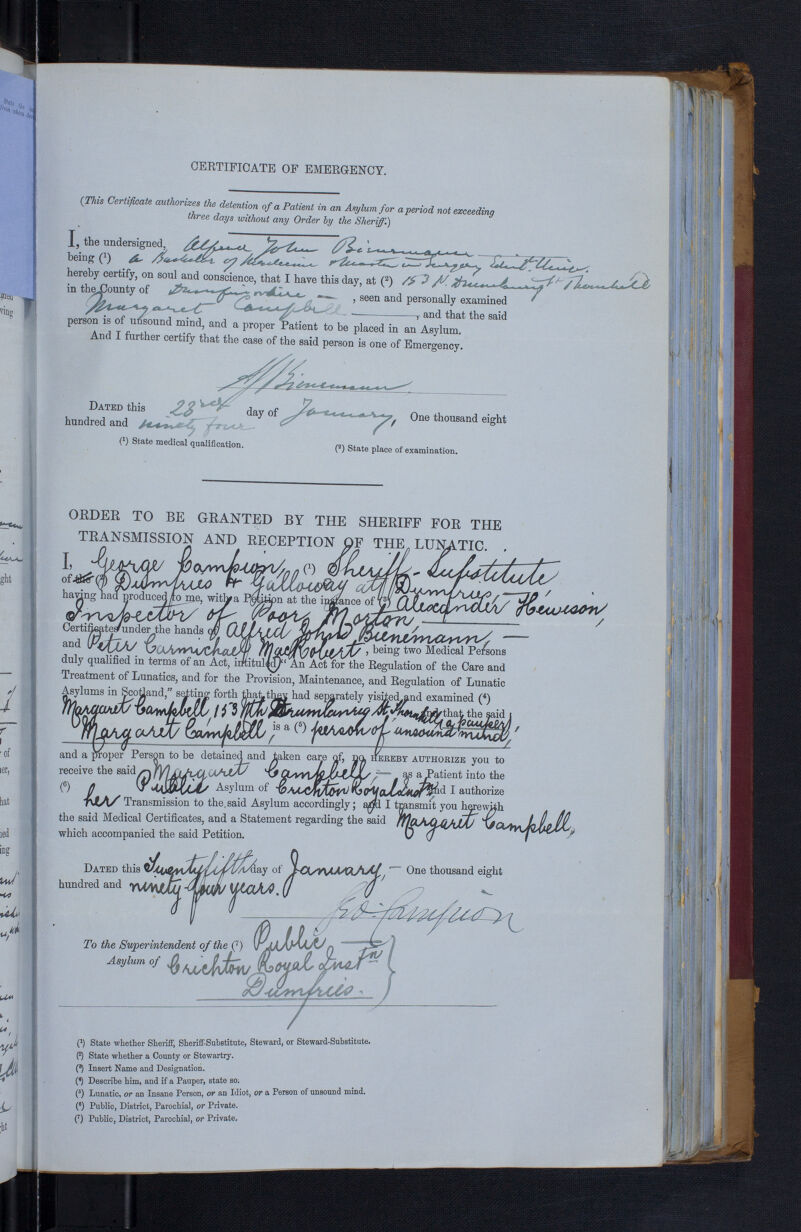 CERTIFICATE OF EMERGENCY.
(This Certificate authorizes the detention of a Patient in an Asylum for a period not exceeding
three days without any Order by the Sheriff.)
I, the undersigned, Alfred John Bienemann
being (¹) a Bachelor of Medicine & Master in Surgery Edinb. Univ.
hereby certify, on soul and conscience, that I have this day, at (²) 153 N. Drumlanrig St Thornhill
in the County of Dumfriesshire — , seen and personally examined
Margaret Campbell —, and that the said
person is of unsound mind, and a proper Patient to be placed in an Asylum.
And I further certify that the case of the said person is one of Emergency.
AJ Bienemann
DATED this 23rd day of January, One thousand eight
hundred and ninety four
(¹) State medical qualification.
(²) State place of examination.
ORDER TO BE GRANTED BY THE SHERIFF FOR THE
TRANSMISSION AND RECEPTION OF THE LUNATIC.
I, George Campion, (¹) Sheriff-Substitute
of the (²) Dumfries & Galloway at Dumfries,
having had produced to me, with a Petition at the instance of (³) Alexander Hewison,
Inspector of Poor, Morton,
Certificates under the hands of Alfred John Bienemann, —
and Peter Carmichael MacRobert, being two Medical Persons
duly qualified in terms of an Act, intituled "An Act for the Regulation of the Care and
Treatment of Lunatics, and for the Provision, Maintenance, and Regulation of Lunatic
Asylums in Scotland," setting forth that they had separately visited and examined (⁴)
Margaret Campbell, 153 Nth Drumlanrig St. Thornhill (a pauper) that the said
Margaret Campbell, is a (⁵) person of unsound mind,
and a proper Person to be detained and taken care of, DO HEREBY AUTHORIZE you to
receive the said Margaret Campbell, — as a Patient into the
(⁶) Public Asylum of Crichton Royal Instn, and I authorize
her Transmission to the said Asylum accordingly; and I transmit you herewith
the said Medical Certificates, and a Statement regarding the said Margaret Campbell,
which accompanied the said Petition.
DATED this Twenty fifth day of January, — One thousand eight
hundred and ninety-four years.
Geo. Campion
To the Superintendent of the (⁷) Public —
Asylum of Crichton Royal Instn
Dumfries.
(¹) State whether Sheriff, Sheriff-Substitute, Steward, or Steward-Substitute.
(²) State whether a County or Stewartry.
(³) Insert Name and Designation.
(⁴) Describe him, and if a Pauper, state so.
(⁵) Lunatic, or an Insane Person, or an Idiot, or a Person of unsound mind.
(⁶) Public, District, Parochial, or Private.
(⁷) Public, District, Parochial, or Private.